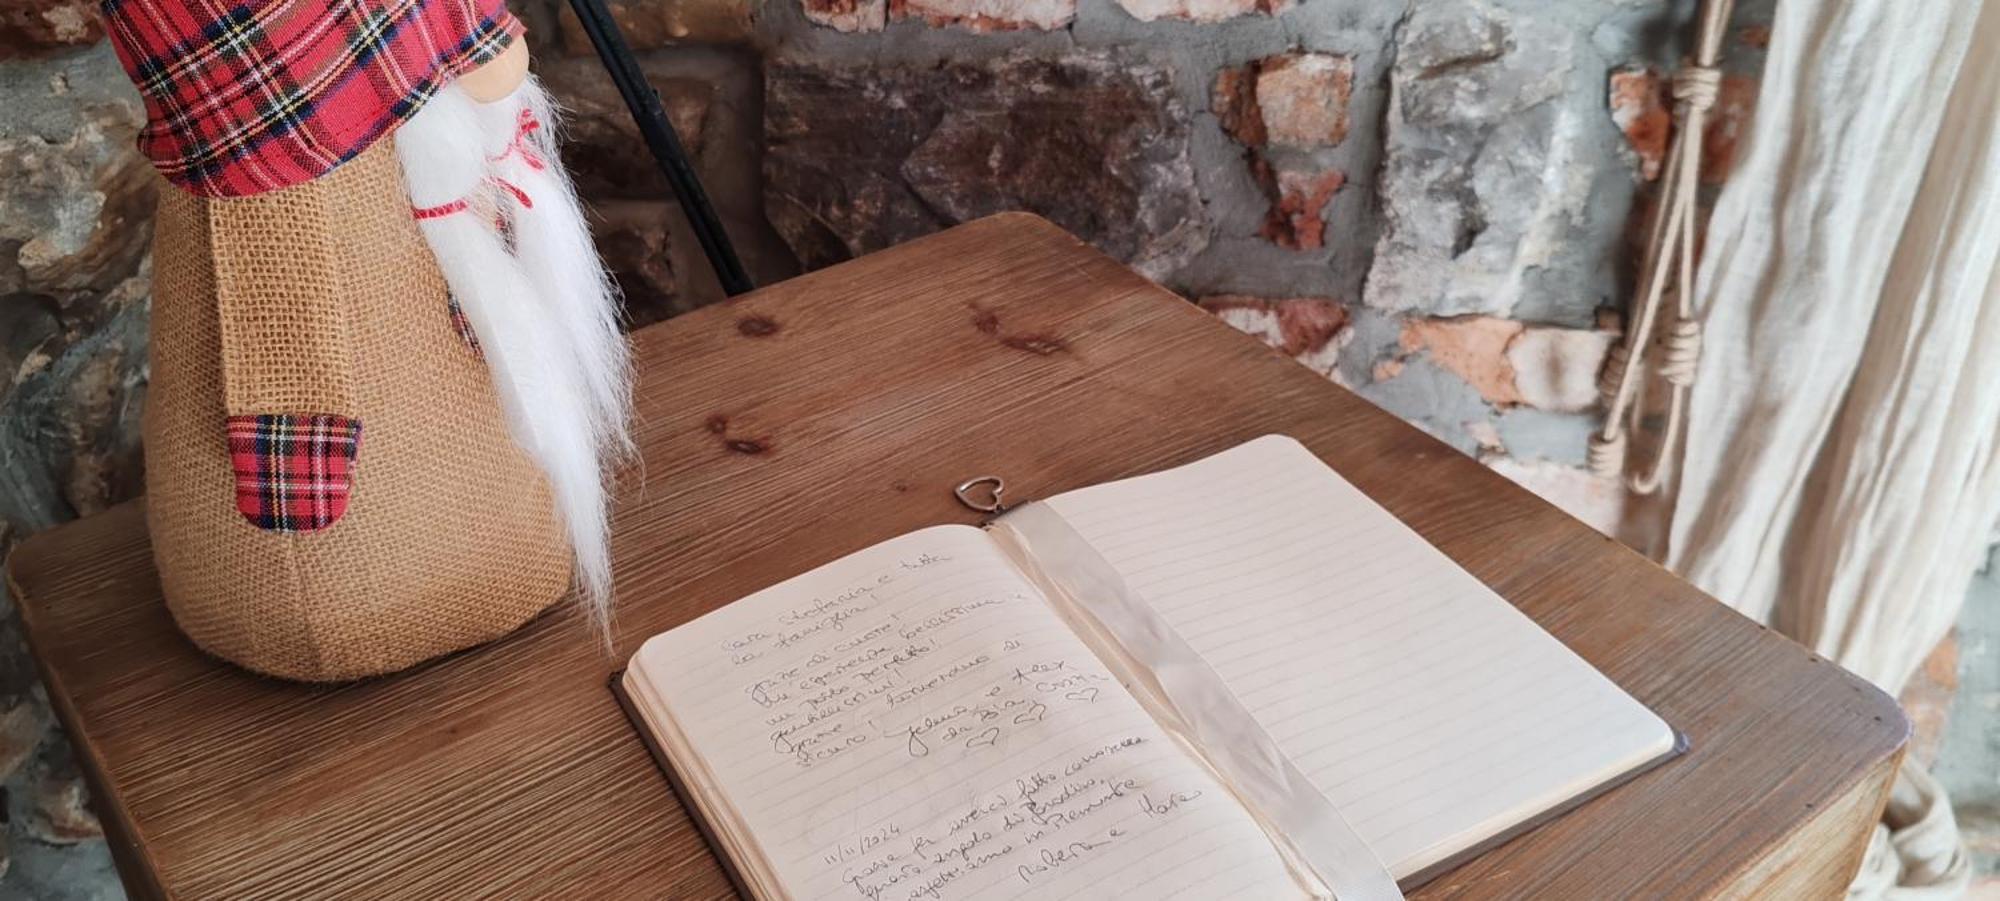 Cara Stefania e tutta
la famiglia!
Grazie di cuore!
Un'esperienza bellissima e
un posto perfetto!
gentilissimi!
Grazie! Torneremo di
sicuro! Jelena e Alex
da Bra
11/11/2024
Grazie per averci fatto conoscere
questo angolo di Paradiso,
aspettiamo in Piemonte
Roberta e Marco